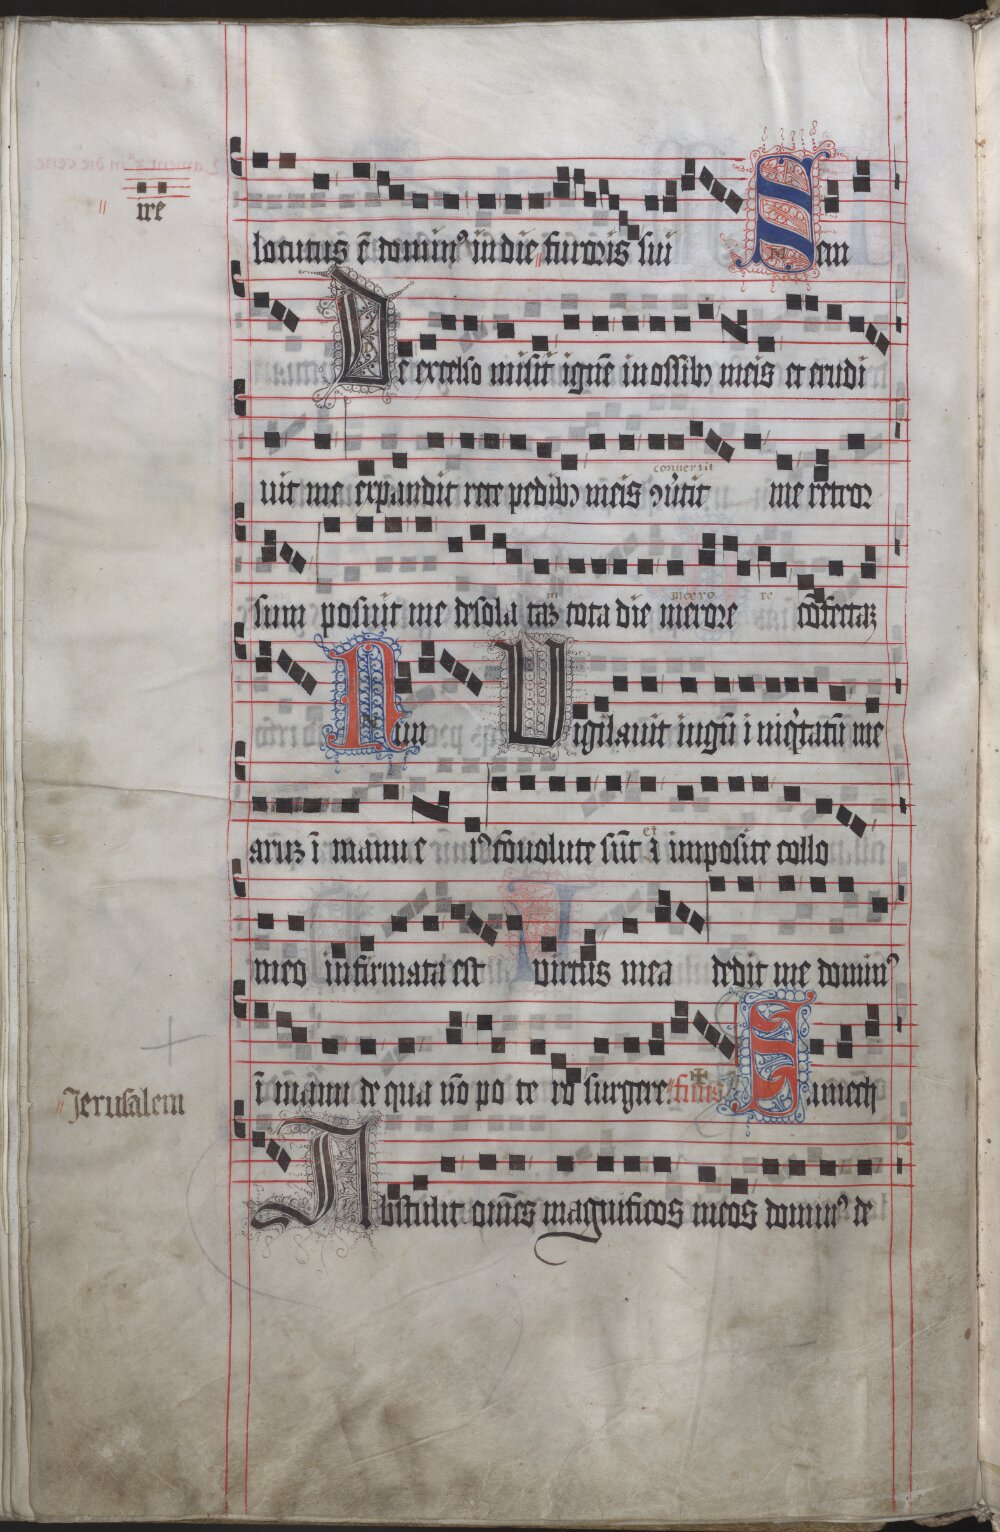 ire
locutus ē domin⁹ in die furoris sui Mem
De excelso misit ignē in ossib₃ meis et erudi
uit me expandit rete pedib₃ meis ꝯu̓tit me retror
convertit
sum posuit me desola taꝫ tota die merore ꝯ̄fectaꝫ
m moero re
Nun Uigilauit iugū iniq̇tatū me
aruꝫ ī manu e i⁹ cōuolute sūt ⁊ imposite collo
et
meo infirmata est virtus mea dedit me domin⁹
ī manu de qua nō po te ro surgere finis Samech
Jerusalem
Abstulit om̄es magnificos meos domin⁹ de